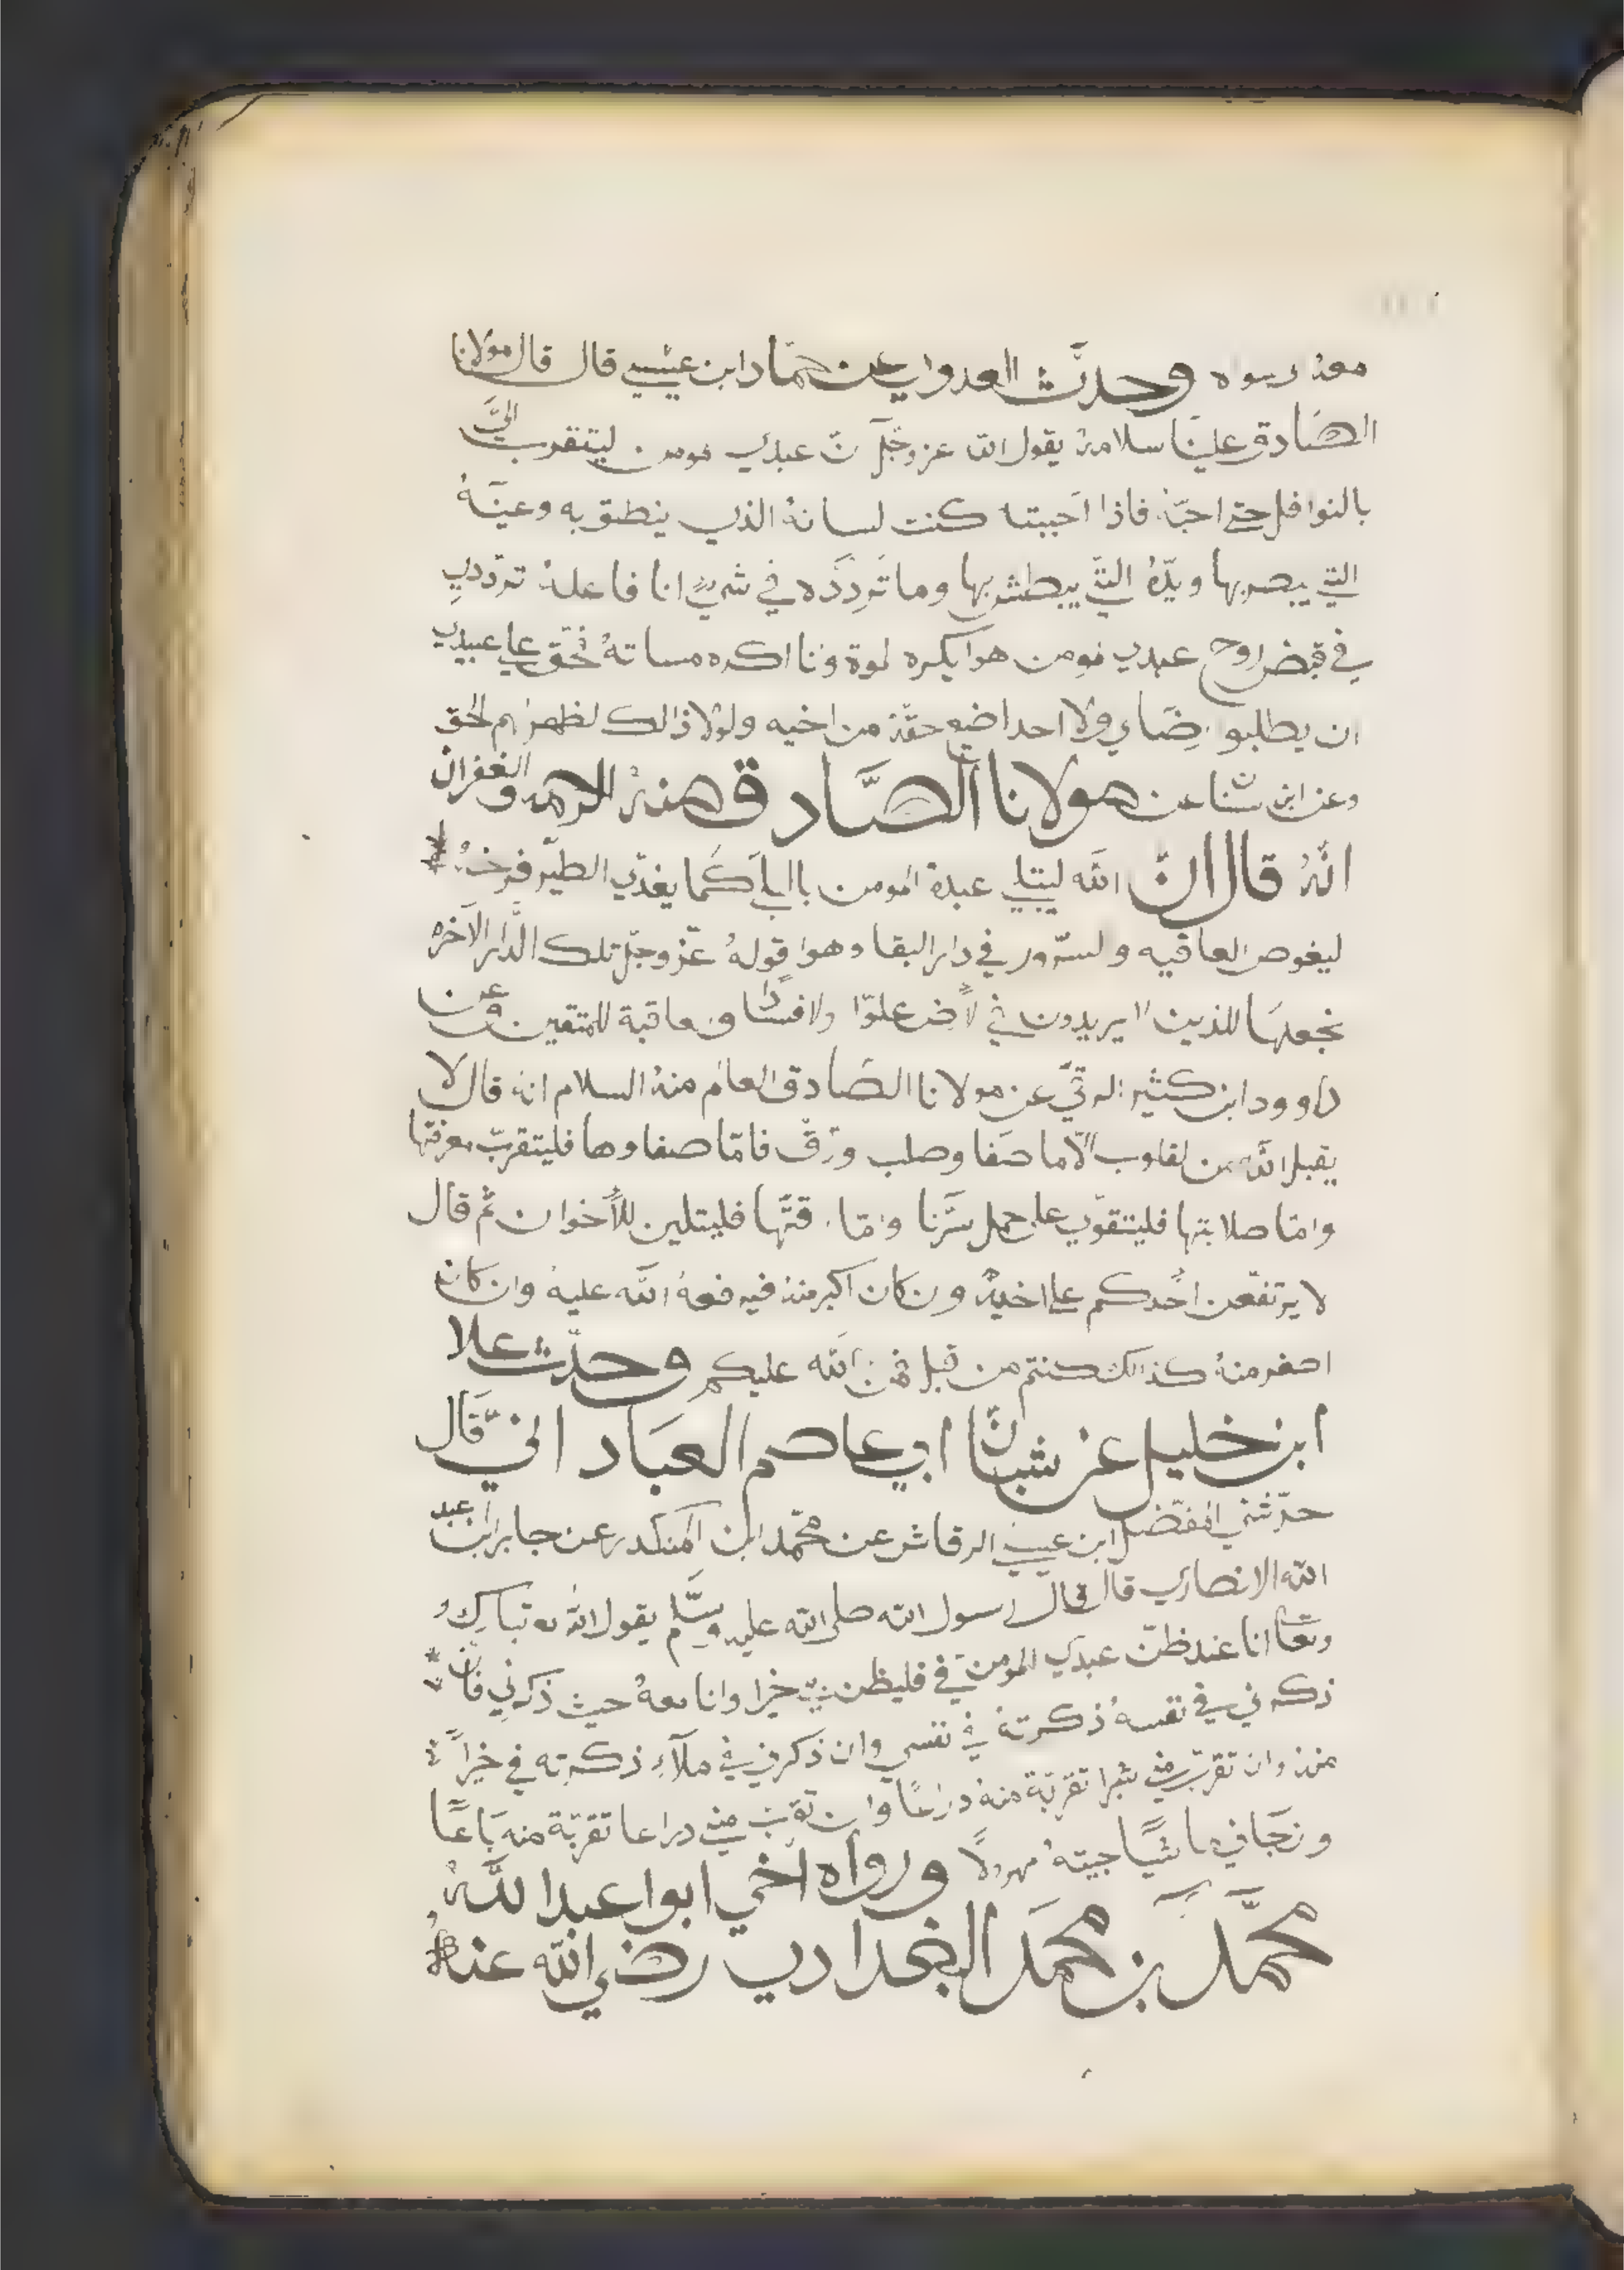 وحدَّث العدوي عن حمَّاد ابن عيسى قال قال مولانا
الصَادق علينا سلامهُ يقول الله عز وجَلّ نّ عبدي مومن ليتقرب اليَّ
بالنوافل حتى احبّهُ فاذا احببته كنت لسانهُ الذي ينطق به وعينَهُ
التي يبصر بها ويدّهُ التَّي يبطش بها وما تَردّدَه في شيءٍ انا فاعلهُ ترّددي
في قبض روح عبدي مومن هوا يكره لموة ونا اكره مساتهُ فحَق على عبيدي
ان يطلبو رضَاي ولا احد اضع حقهُ من اخيه ولولا ذالك لظهر لهم لحق
وعن ابن سنان عن مولانا الصَّادق منهُ الرحمه والغفران
انّهُ قال انّ الله ليبتلي عبدهُ المومن باالبلَا كَما يغدّي الطيّر فرخهُ
ليغوص العافيه ولسّرور في دار البقا وهوا قولهُ عَزّ وجلّ تلك الدَّار الآخره
نجعلهَا للذين لا يريدون في لأَرض علوّا ولا فسادًا ولعاقبة للمتقين وعن
داوود ابن كثير الرقّي عن مولانا الصَادق العالم منهُ السلام انهُ قال لا
يقبل الله من لقلوب الّا ما صَفا وصلب ورقّ فامّا صفاوها فليتقربّ بمعرفتها
وامّا صلابتها فليتقوّي على حمل سَّرنا وامّا رقتَّها فليتلين للأُخوان ثمّ قال
لا يرتفعّن احَدكم على اخيهُ ون كان اكبر منهُ فيرفعهُ الله عليهُ وان كان
اصغر منهُ كذالك كنتم من قبل فمّن الله عليكم وحدّث علا
ابن خليل عن شبانّ ابي عاصم العبَاداني قَّال
حدّثني المفضّل ابن عيسى الرقاش عن محمّد ابن المنكدر عن جابر ابن عبد
الله الانصاري قال قال رسول الله صلى الله عليه وسَّلم يقول الله تبارك
وتعَالى انا عند ظنّ عبدي المومن في فليظن بي خيرا وانا معهُ حيث ذكرَني فان
ذكرني في نفسهُ ذكرتهُ في نفسي وان ذكرني في ملآءِ ذكرته في خيراً
منهُ وان تقربّ مني شبرا تقربّة منهُ ذراعًا وان تقرّب مني دراعا تقربّة منه بَاعًا
ونجَاني ماشيًا جيتهُ مهرولًا ورواه اخي ابوا عبد اللَّهُ
محمَّد بن محمَد البغدادي رضي الله عنهُ